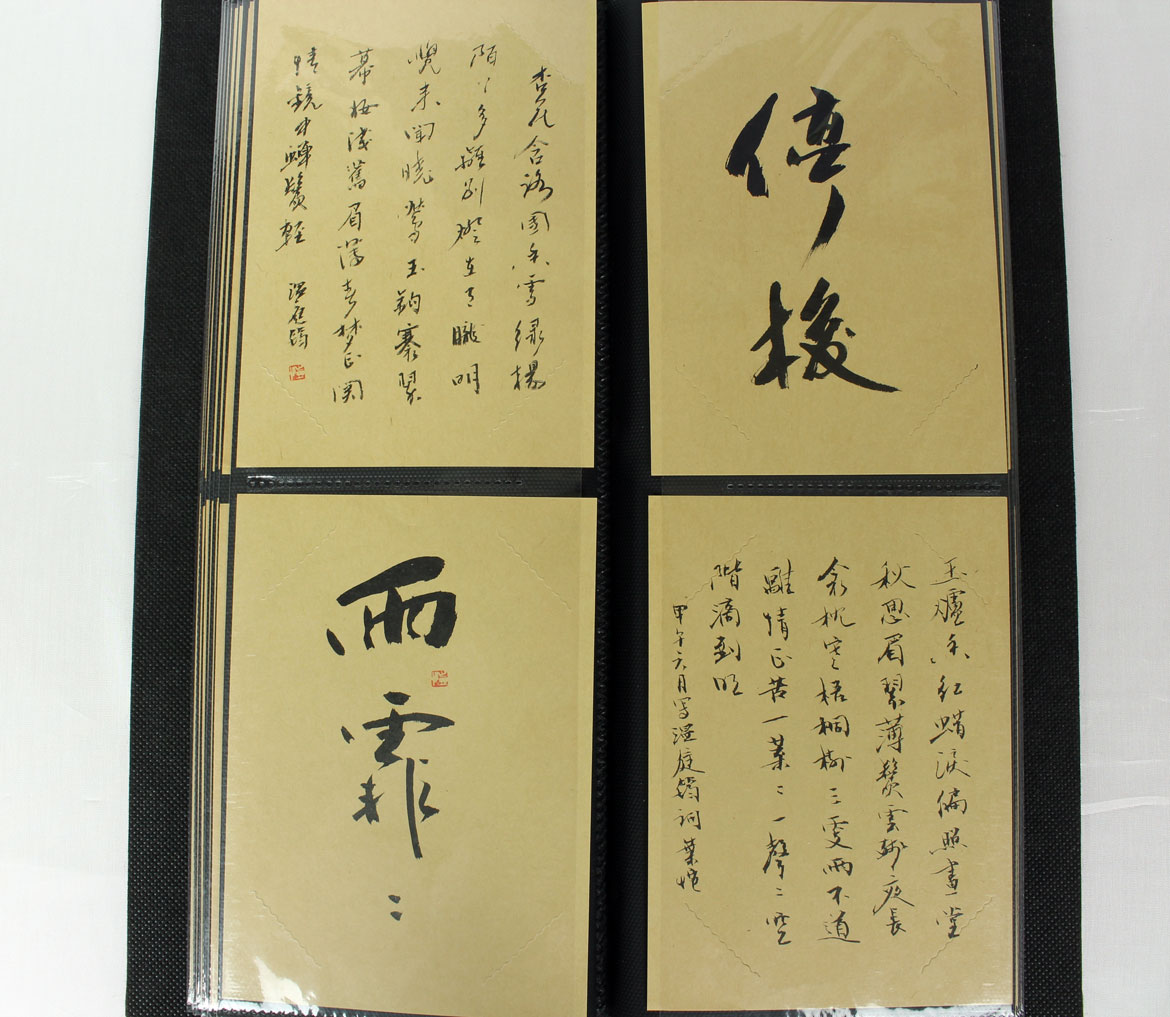 停梭
杏花含露团香雪绿楊
陌上多離别燈在月朧明
覺来闻曉鶯玉鈎褰翠
幕妝淺舊眉薄春梦正関
情鏡中蟬鬢輕
温庭筠
玉爐香红蜡淚偏照畫堂
秋思眉翠薄鬢雲残夜長
衾枕寒梧桐樹三更雨不道
離情正苦一葉〻一聲〻空
階滴到明
甲午六月写温庭筠詞葉
雨霏〻